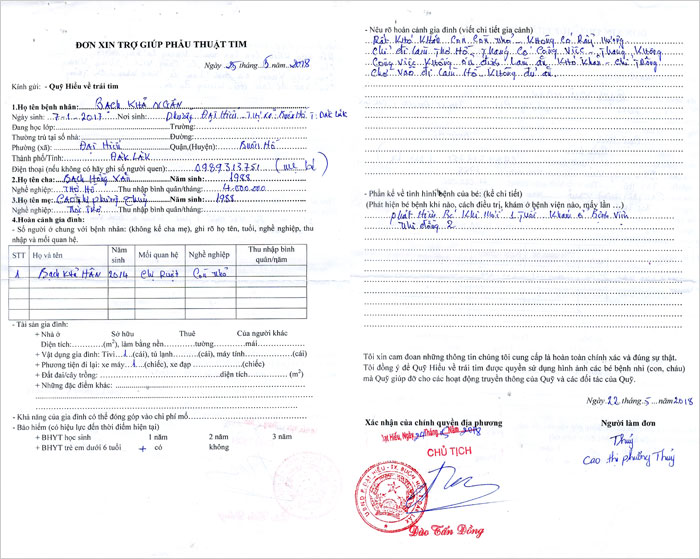 ĐƠN XIN TRỢ GIÚP PHẪU THUẬT TIM
Ngày 25 tháng 5 năm 2018
Kính gửi: - Quỹ Hiểu về trái tim
1.Họ tên bệnh nhân: BẠCH KHẢ NGÂN
Ngày sinh: 7-1-2017 Nơi sinh: Phường Đạt Hiếu
Đang học lớp: Trường:
Thường trú tại số nhà: Đường:
Phường (xã): Đạt Hiếu Quận,(Huyện): Buôn Hồ
Thành phố/Tỉnh: ĐĂK LĂK
Điện thoại (nếu không có hãy ghi số người quen): 0989313751 (mẹ bé)
2.Họ tên cha: BẠCH Hồng Vấn Năm sinh: 1988
Nghề nghiệp: Thợ Hồ Thu nhập bình quân/tháng: 4.000.000
3.Họ tên mẹ: CAO thị phương Thuý Năm sinh: 1988
Nghề nghiệp: Thu nhập bình quân/tháng:
4.Hoàn cảnh gia đình:
- Số người ở chung với bệnh nhân: (không kể cha mẹ), ghi rõ họ tên, tuổi, nghề nghiệp, thu
nhập và mối quan hệ.
STT Họ và tên Năm sinh Mối quan hệ Nghề nghiệp Thu nhập bình quân/năm
1 BẠCH KHẢ HÂN 2014 Chị Ruột Còn nhỏ
- Tài sản gia đình:
+ Nhà ở Sở hữu Thuê Của người khác
Diện tích: (m2), làm bằng nền tường mái
+ Vật dụng gia đình: Tivi 1 (cái), tủ lạnh (cái), máy tính (cái)
+ Phương tiện đi lại: xe máy 1 (chiếc), xe đạp (chiếc)
+ Đất đai/cây trồng: diện tích (m2)
+ Những đặc điểm khác:
- Khả năng của gia đình có thể đóng góp vào chi phí mổ
- Bảo hiểm (có hiệu lực đến thời điểm hiện tại)
+ BHYT học sinh 1 năm 2 năm 3 năm
+ BHYT trẻ em dưới 6 tuổi + có không
- Nêu rõ hoàn cảnh gia đình (viết chi tiết gia cảnh)
Rất Khó Khăn Con Còn Nhỏ Không Có Rẫy Nương
Chỉ đi Làm Thợ Hồ Tháng Có Công Việc Tháng Không
Công Việc Không ổn định Làm ăn Khó Khăn Chỉ Trông
Chờ Vào đi Làm Hồ Không đủ ăn
- Phần kể về tình hình bệnh của bé: (kể chi tiết)
(Phát hiện bé bệnh khi nào, cách điều trị, khám ở bệnh viện nào, mấy lần ...)
phát Hiện Bé Khi Mới 1 Tuổi Khám ở Bệnh Viện
Nhi đồng 2
Tôi xin cam đoan những thông tin chúng tôi cung cấp là hoàn toàn chính xác và đúng sự thật.
Tôi đồng ý để Quỹ Hiểu về Trái tim được quyền sử dụng hình ảnh các bé bệnh nhi (con, cháu)
mà Quỹ giúp đỡ cho các hoạt động truyền thông của Quỹ và các đối tác của Quỹ.
Ngày 22 tháng 5 năm 2018
Xác nhận của chính quyền địa phương Người làm đơn
Đạt Hiếu, Ngày 24 Tháng 5 Năm 2018
CHỦ TỊCH
Thúy
Cao thị phương Thuý
Đào Tấn Đồng